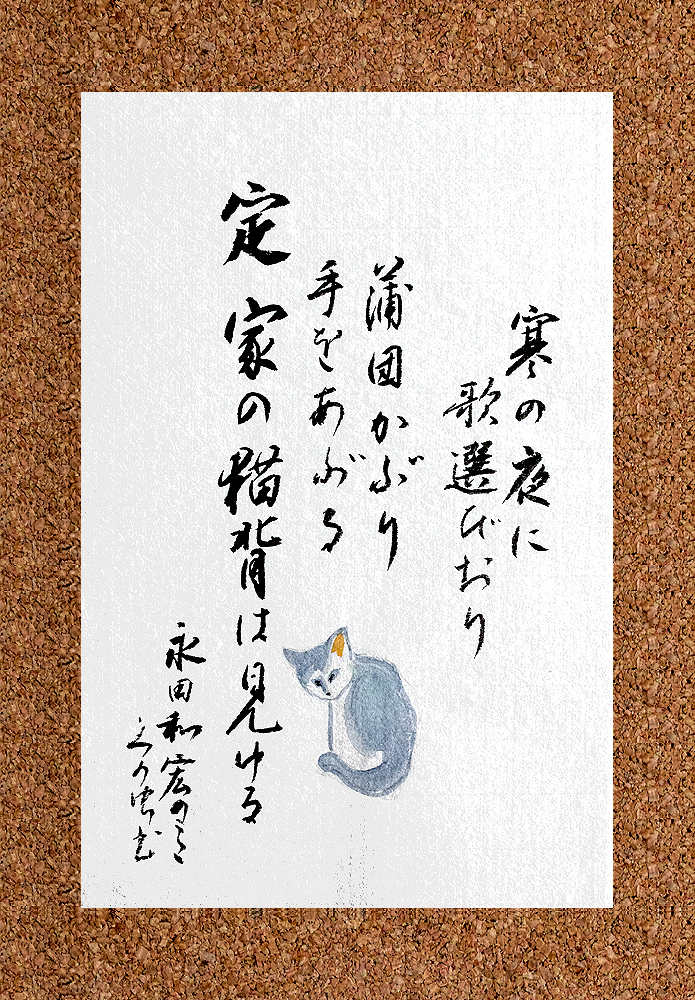 寒の夜に
歌選びおり
蒲団かぶり
手をあぶる
定家の猫背は見ゆる
永田和宏のうた